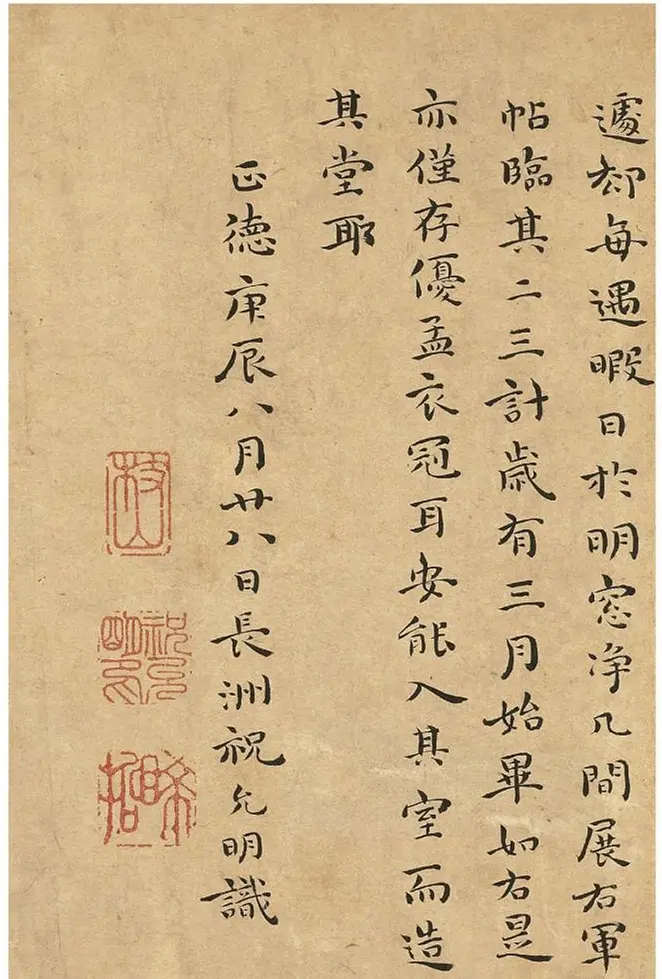 遽却每遇暇日於明窓净几間展右軍
帖臨其二三計歲有三月始畢如右是
亦僅存優孟衣冠耳安能入其室而造
其堂耶
正德庚辰八月廿八日長洲祝允明識
枝山
祝允明印
晞喆